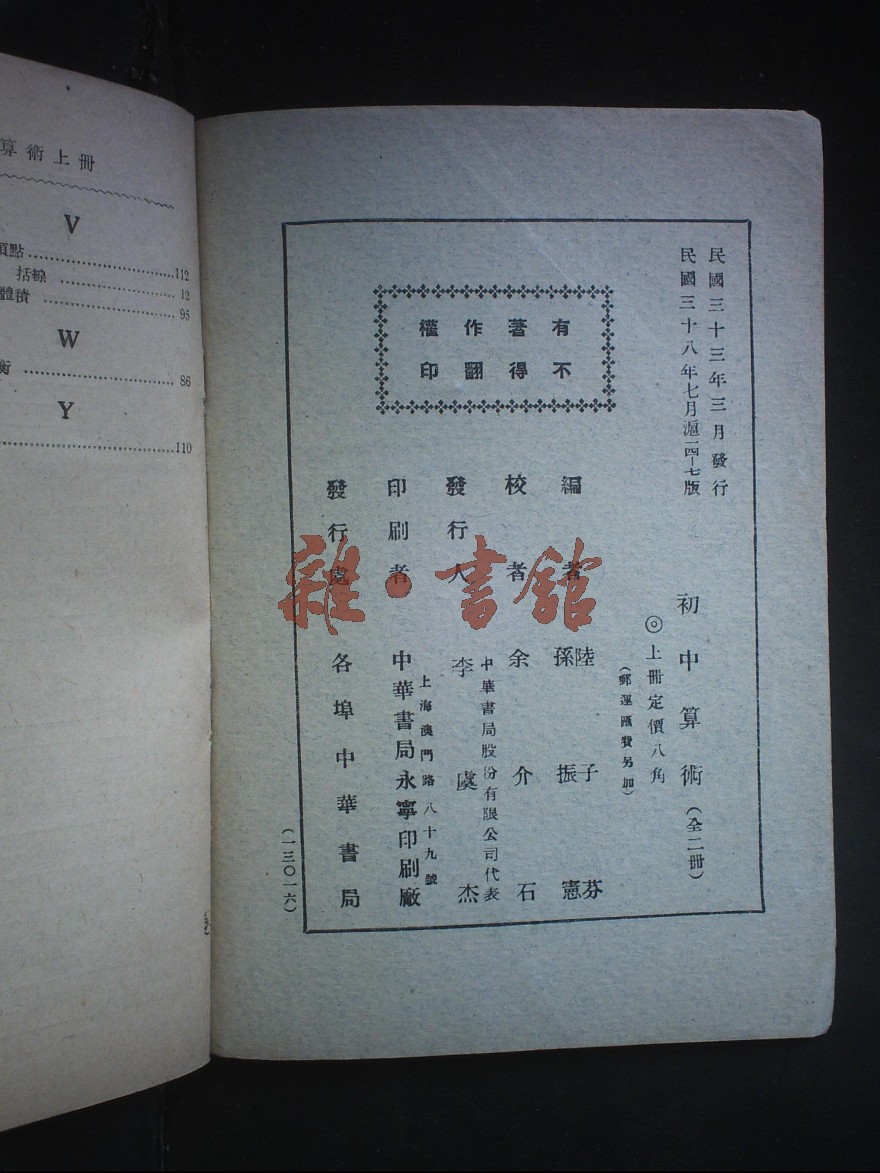 算術上冊
V
頂點 112
括線 12
體積 95
W
衡 86
Y
110
民國三十三年三月發行
民國三十八年七月滬一四—七版
有著作權
不得翻印
初中算術(全二冊)
◎上冊定價八角
(郵運匯費另加)
編者 陸子芬
孫振憲
校者 余介石
發行人 李虞杰
中華書局股份有限公司代表
印刷者 中華書局永寧印刷廠
上海澳門路八十九號
發行處 各埠中華書局
(一三〇一六)
雜·書館